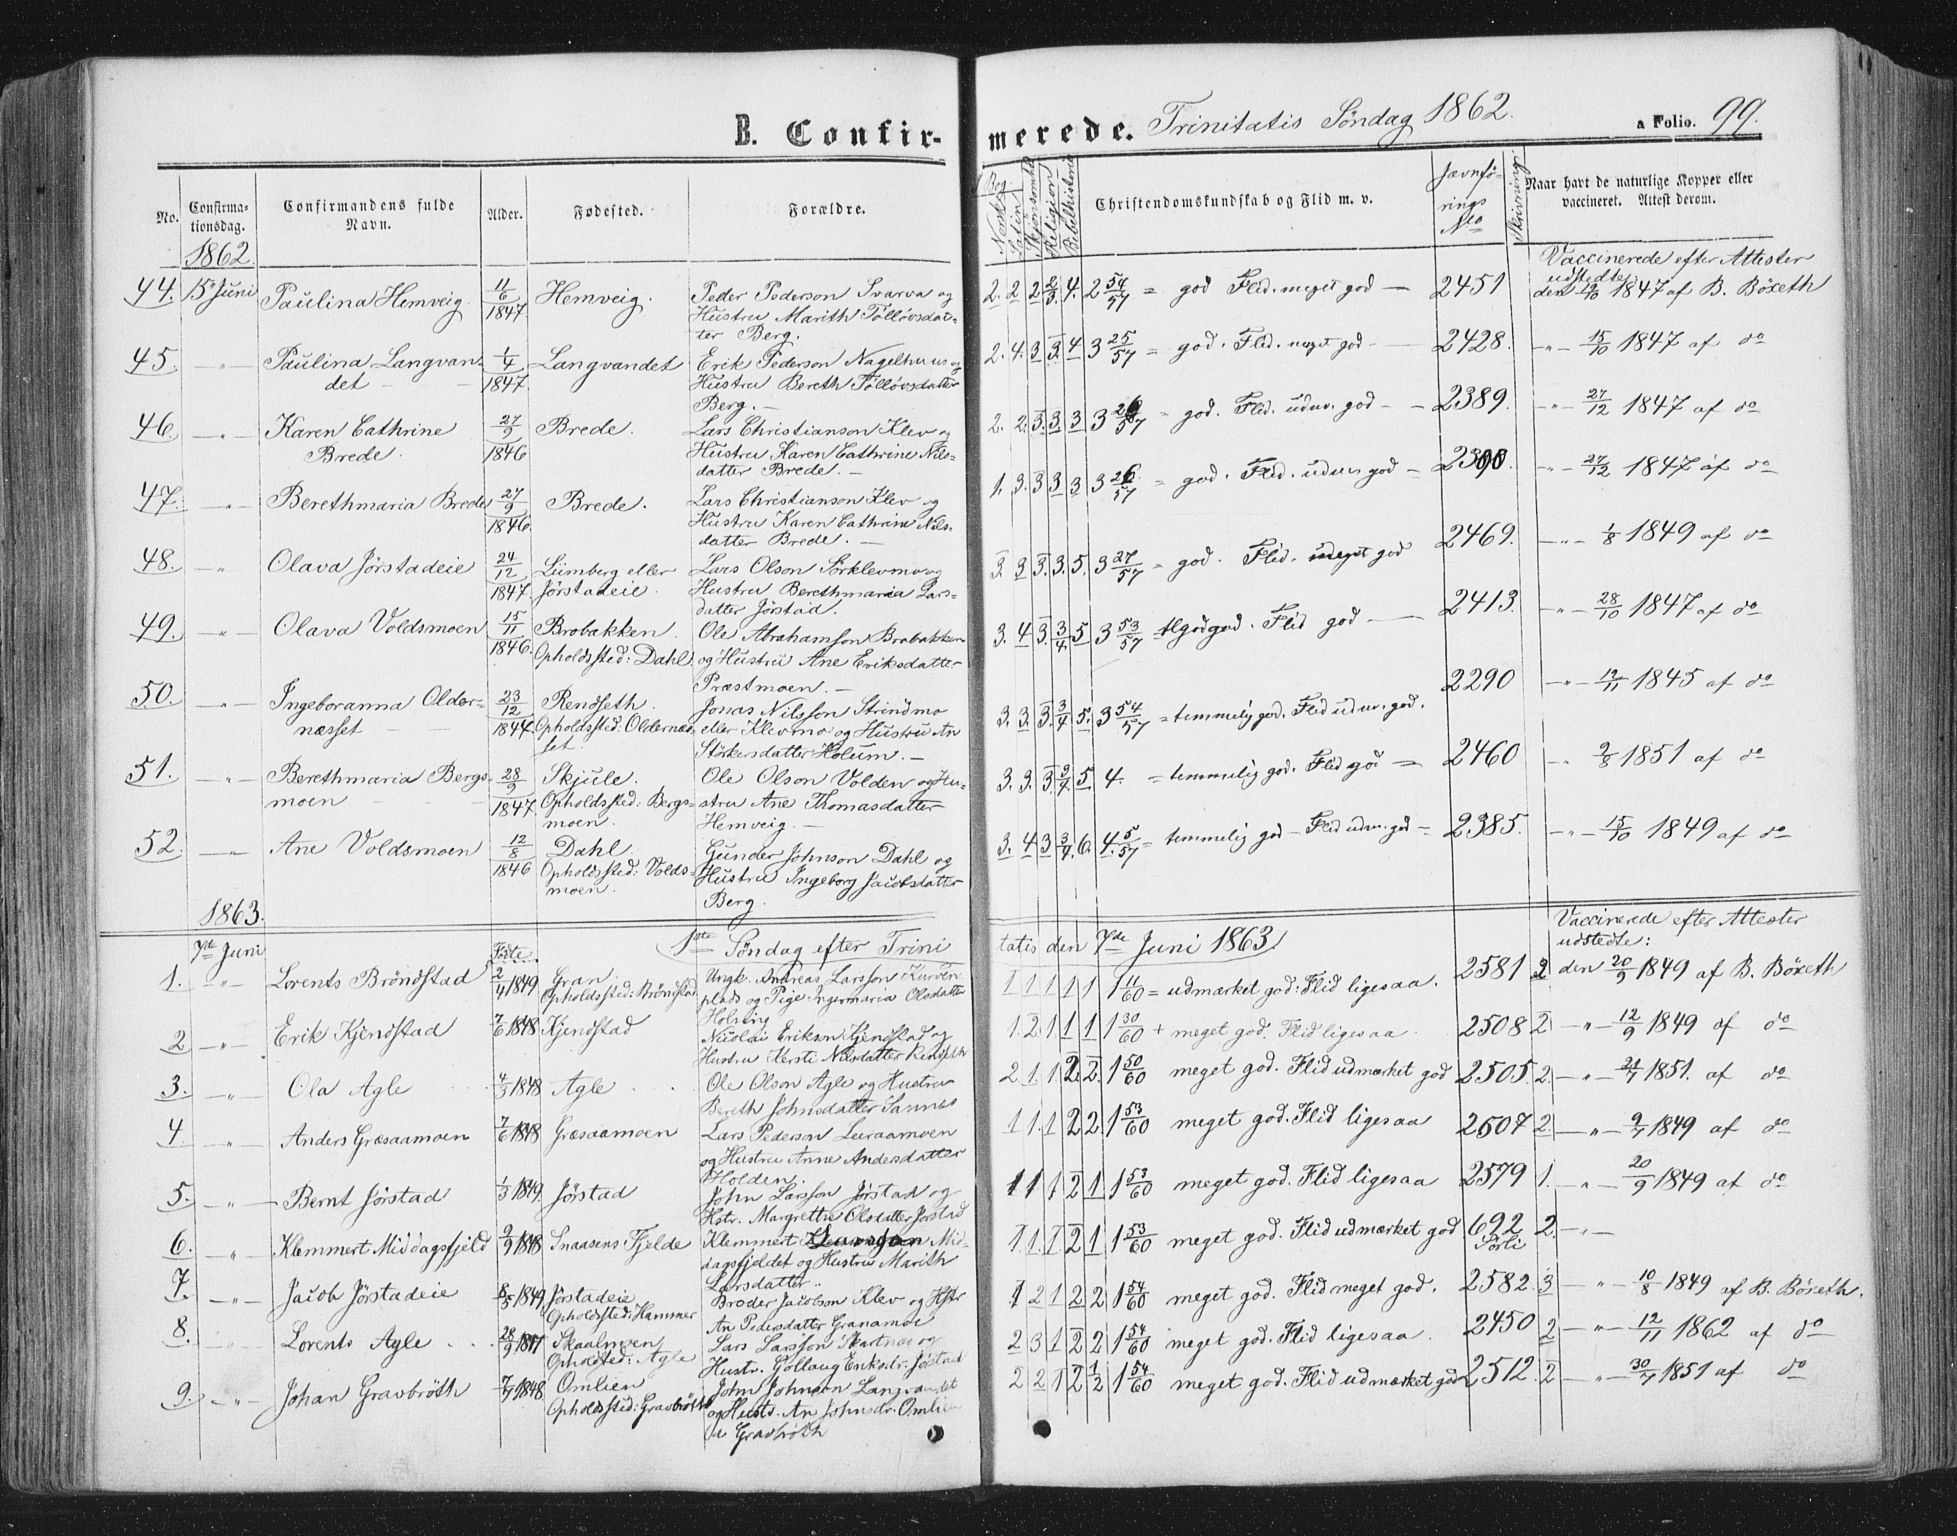 B. Confirmerede. Trinitatis Söndag 1862. a Folio. 99.
No. Confirmationsdag. Confirmandens fulde Navn. Alder. Fødested. Forældre. Norsk Latin Skjönsomhed Religion Bibelhistorie Christendomskundskab og Flid m. v. Jævnförings No Skrivning Naar havt de naturlige Kopper eller vaccineret. Attest derom.
1862. Vaccinerede efter Attester udstedte
44. 15de Juni Paulina Hemveig. 11/6 1847. Hemveig. Peder Pederson Svarva og Hustru Marith Tölløvsdatter Berg. 2. 2 2 2/3. 4. 2 54/57 = god Flid. meget god — 2451 den 12/10 1847 af B. Böxeth
45. —"— Paulina Langvandet 1/4 1847. Langvandet Erik Pederson Nagelhuus og Hustru Bereth Tölløvsdatter Berg. — 2. 4. 3 3. 4 3 25/57 = god. Flid. meget god — 2428. —"— 15/10 1847 af do
46. —"— Karen Cathrine Brede. 27/9 1846 Brede. Lars Christianson Klev og Hustru Karen Cathrine Nilsdatter Brede. — 2. 2. 3. 3. 3 3 26/57 = god. Flid. udm. god — 2389. —"— 27/12 1847 af do
47. —"— Berethmaria Brede 27/9 1846. Brede. Lars Christianson Klev og Hustru Karen Cathrine Nilsdatter Brede. — 1. 3. 3 3 3 3 26/57 = god. Flid. udm god — 2390. —"— 27/12 1847 af do
48. —"— Olava Jörstadeie 24/12 1847. Lümberg eller Jørstadeie. Lars Olson Sörklevmo og Hustru Berethmaria Larsdatter Jörstad. 3. 3 3. 3. 5. 3 27/57 = god. Flid. meget god 2469. —"— 1/8 1849 af do
49. —"— Olava Voldsmoen 15/11 1846. Brobakken. Opholdssted: Dahl. Ole Abrahamson Brobakken og Hustru Ane Eriksdatter Præstmoen. — 3. 4 3. 3/4. 5 3 53/57 tlgod god. Flid god — 2413. —"— 28/10 1847 af do
50. —"— Ingeboranna Oldernæsset 23/12 1844. Rendseth. Opholdssted: Oldernæsset Jonas Nilsson Strindmo eller Klevmo og Hustru An Störkersdatter Holum. — 3. 3. 3. 3/4 5. 3 54/57 = temmelig god. Flid udm. god. 2290 —"— 12/11 1845 af do
51. —"— Berethmaria Bergsmoen 28/9 1847. Skjule. Opholdssted: Bergsmoen. Ole Olson Volden og Hustru Ane Thomasdatter Hemveig. — 3. 3. 3 3/4 5 4. = temmelig god. Flid god = 2460 —"— 2/8 1851 af do
52. —"— Ane Voldsmoen 12/8 1846 Dahl. Opholdssted: Voldsmoen. Gunder Johnson Dahl og Hustru Ingeborg Jacobsdatter Berg. 3. 4 3 3/4. 6. 4. 5/57 = temmelig god — Flid udm. god = 2385. —"— 15/10 1849 af do
1863.
7de Juni Födte. 1ste Söndag efter Trinitatis den 7de Juni 1863. Vaccinerede efter Attester udstedte:
1. "— Lorents Bröndstad 2/4 1849 Gran. Opholdssted: Bröndstad Ungk. Andreas Larsson Kurvenplads og Pige Ingermaria Olsdatter Holsing 1 1 1 1 1 1 11/60 = udmærket god: Flid ligesaa. 2581 2 den 20/9 1849 af B. Böxeth
2 —"— Erik Kjendstad 7/6 1848 Kjendstad Nicolai Erikson Kjendstad og Hustru Kersti Nilsdatter Rendseth 1. 2. 1 1 1 1 30/60 + meget god. Flid ligesaa 2508 2 —"— 12/9 1849 af do
3. —"— Ola Agle 4/3 1848 Agle Ole Olson Agle og Hustru Bereth Johnsdatter Sannes 2. 1. 1 2. 2. 1 50/60 meget god. Flid udmærket god 2505. 2. —"— 24/7 1851. af do
4 " Anders Græsaamoen 7/6 1848 Græsaamoen Lars Pederson Luraamoen og Hustru Anne Andersdatter Holden. 1 1. 1 2 2. 1 53/60 meget god. Flid ligesaa 2507 2. —"— 9/7 1849 af do
5. —"— Bernt Jörstad 1/3 1849 Jörstad John Larsson Jörstad og Hstr. Margrethe Olsdatter Jörstad 1 1 1 2 1 1 53/60 meget god. Flid ligesaa 2579 1. —"— 20/9 1849 af do
6. " Klemmert Middagsfjeld 9/9 1848 Snaasens Fjelde Klemmert Larsson Middagsfjeldet og Hustru Marith Larsdatter. 1. 1. 1 2 1 1 53/60 meget god. Flid udmærket god 692 Sörli 2. —"—
7. —"— Jacob Jörstadeie 8/5 1849 Jörstadeie Opholdssted: Hammer Broder Jacobson Klev og Hstr An Pedersdatter Granamoe 1 2 1 2 2 1 54/60 meget god. Flid meget god. 2582. 3 —"— 10/8 1849 af B. Böxeth.
8. —"— Lorents Agle 28/9 1847 Skaalmoen Opholdssted: Agle Lars Larsson Skartnes og Hustr. Gollaug Eriksdr. Jörstad 2 3 1 2 2 1 54/60 meget god. Flid ligesaa. 2450 2 —"— 12/11 1862 af do
9. —"— Johan Gravbröth 7/7 1848. Omlien Opholdssted: Gravbröth John Johnson Langvandet og Hustr. An Johnsdr. Omlien Gravbröth 2 2 1 2 1/2 1 54/60 meget god. Flid udmærket god 2512. 2 —"— 30/7 1851 af do